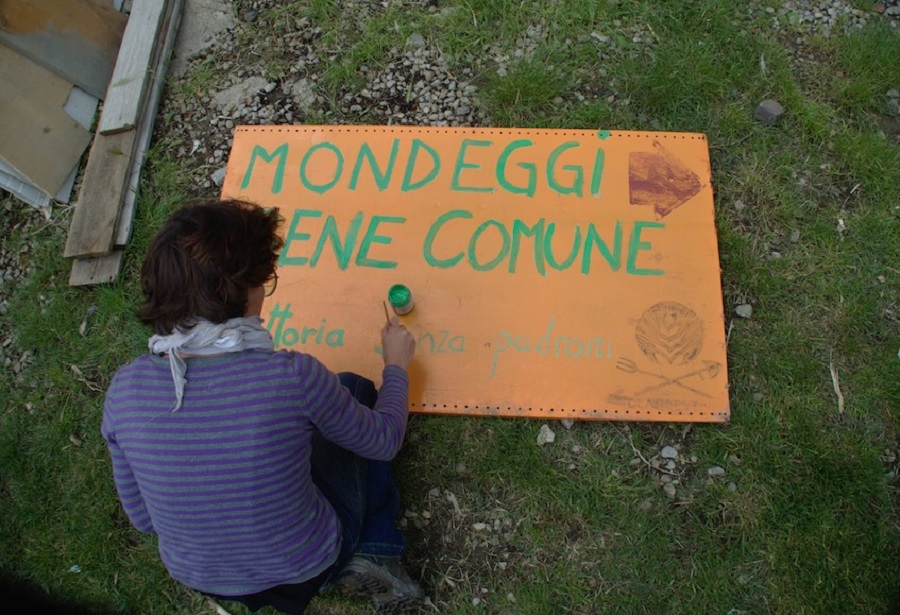 MONDEGGI
ENE COMUNE
ttoria nza padroni